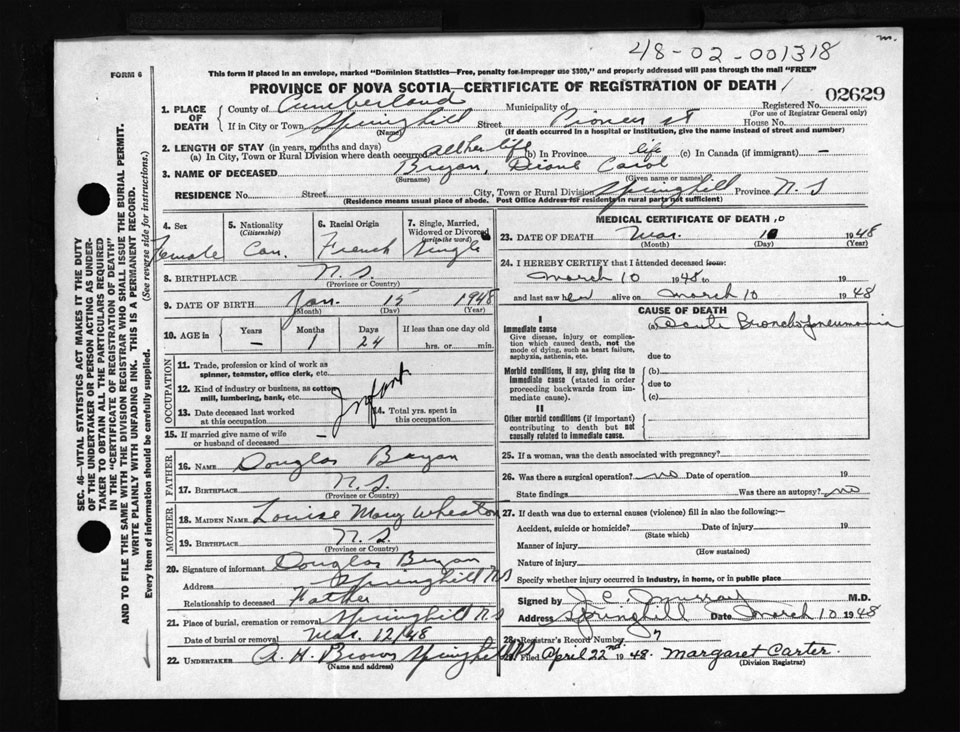 m.
48-02-001318
FORM 6
This form if placed in an envelope, marked "Dominion Statistics—Free, penalty for improper use $300," and properly addressed will pass through the mail "FREE"
PROVINCE OF NOVA SCOTIA—CERTIFICATE OF REGISTRATION OF DEATH
02629
1. PLACE OF DEATH
County of Cumberland Municipality of Registered No.
(For use of Registrar General only)
If in City or Town Springhill Street Pioneer St House No.
(Name) (If death occurred in a hospital or institution, give the name instead of street and number)
2. LENGTH OF STAY (in years, months and days)
(a) In City, Town or Rural Division where death occurred all her life (b) In Province life (c) In Canada (if immigrant) —
3. NAME OF DECEASED Bryan, Diane Carol
(Surname) (Given name or names)
RESIDENCE No. Street City, Town or Rural Division Springhill Province N.S
(Residence means usual place of abode. Post Office Address for residents in rural parts not sufficient)
4. Sex Female
5. Nationality (Citizenship) Can.
6. Racial Origin French
7. Single, Married, Widowed or Divorced (write the word) Single
8. BIRTHPLACE N.S.
(Province or Country)
9. DATE OF BIRTH Jan. 15 1948
(Month) (Day) (Year)
10. AGE in Years — Months 1 Days 24 If less than one day old hrs. or min.
OCCUPATION
11. Trade, profession or kind of work as spinner, teamster, office clerk, etc.
12. Kind of industry or business, as cotton mill, lumbering, bank, etc.
Infant
13. Date deceased last worked at this occupation
14. Total yrs. spent in this occupation
15. If married give name of wife or husband of deceased —
FATHER
16. NAME Douglas Bryan
17. BIRTHPLACE N.S.
(Province or Country)
MOTHER
18. MAIDEN NAME Louise Mary Wheaton
19. BIRTHPLACE N.S.
(Province or Country)
20. Signature of informant Douglas Bryan
Address Springhill N.S
Relationship to deceased Father
21. Place of burial, cremation or removal Springhill N.S
Date of burial or removal Mar. 12/48
22. UNDERTAKER A. H. Brown Springhill N.S
(Name and address)
MEDICAL CERTIFICATE OF DEATH
23. DATE OF DEATH Mar. 10 1948
(Month) (Day) (Year)
24. I HEREBY CERTIFY that I attended deceased from:
March 10 1948 to 19
and last saw her alive on March 10 1948
CAUSE OF DEATH
I
Immediate cause
Give disease, injury or complication which caused death, not the mode of dying, such as heart failure, asphyxia, asthenia, etc.
(a) Acute Bronchopneumonia
due to
Morbid conditions, if any, giving rise to immediate cause (stated in order proceeding backwards from immediate cause).
(b)
due to
(c)
II
Other morbid conditions (if important) contributing to death but not causally related to immediate cause.
25. If a woman, was the death associated with pregnancy?
26. Was there a surgical operation? no Date of operation 19
State findings Was there an autopsy? no
27. If death was due to external causes (violence) fill in also the following:—
Accident, suicide or homicide? Date of injury 19
(State which)
Manner of injury
(How sustained)
Nature of injury
Specify whether injury occurred in industry, in home, or in public place
Signed by J. C. Murray M.D.
Address Springhill Date March 10 1948
28. Registrar's Record Number 7
Filed April 22nd 1948. Margaret Carter.
(Division Registrar)
SEC. 46—VITAL STATISTICS ACT MAKES IT THE DUTY
OF THE UNDERTAKER OR PERSON ACTING AS UNDER-
TAKER TO OBTAIN ALL THE PARTICULARS REQUIRED
IN THE "CERTIFICATE OF REGISTRATION OF DEATH"
AND TO FILE THE SAME WITH THE DIVISION REGISTRAR WHO SHALL ISSUE THE BURIAL PERMIT.
WRITE PLAINLY WITH UNFADING INK. THIS IS A PERMANENT RECORD.
Every item of information should be carefully supplied. (See reverse side for instructions.)